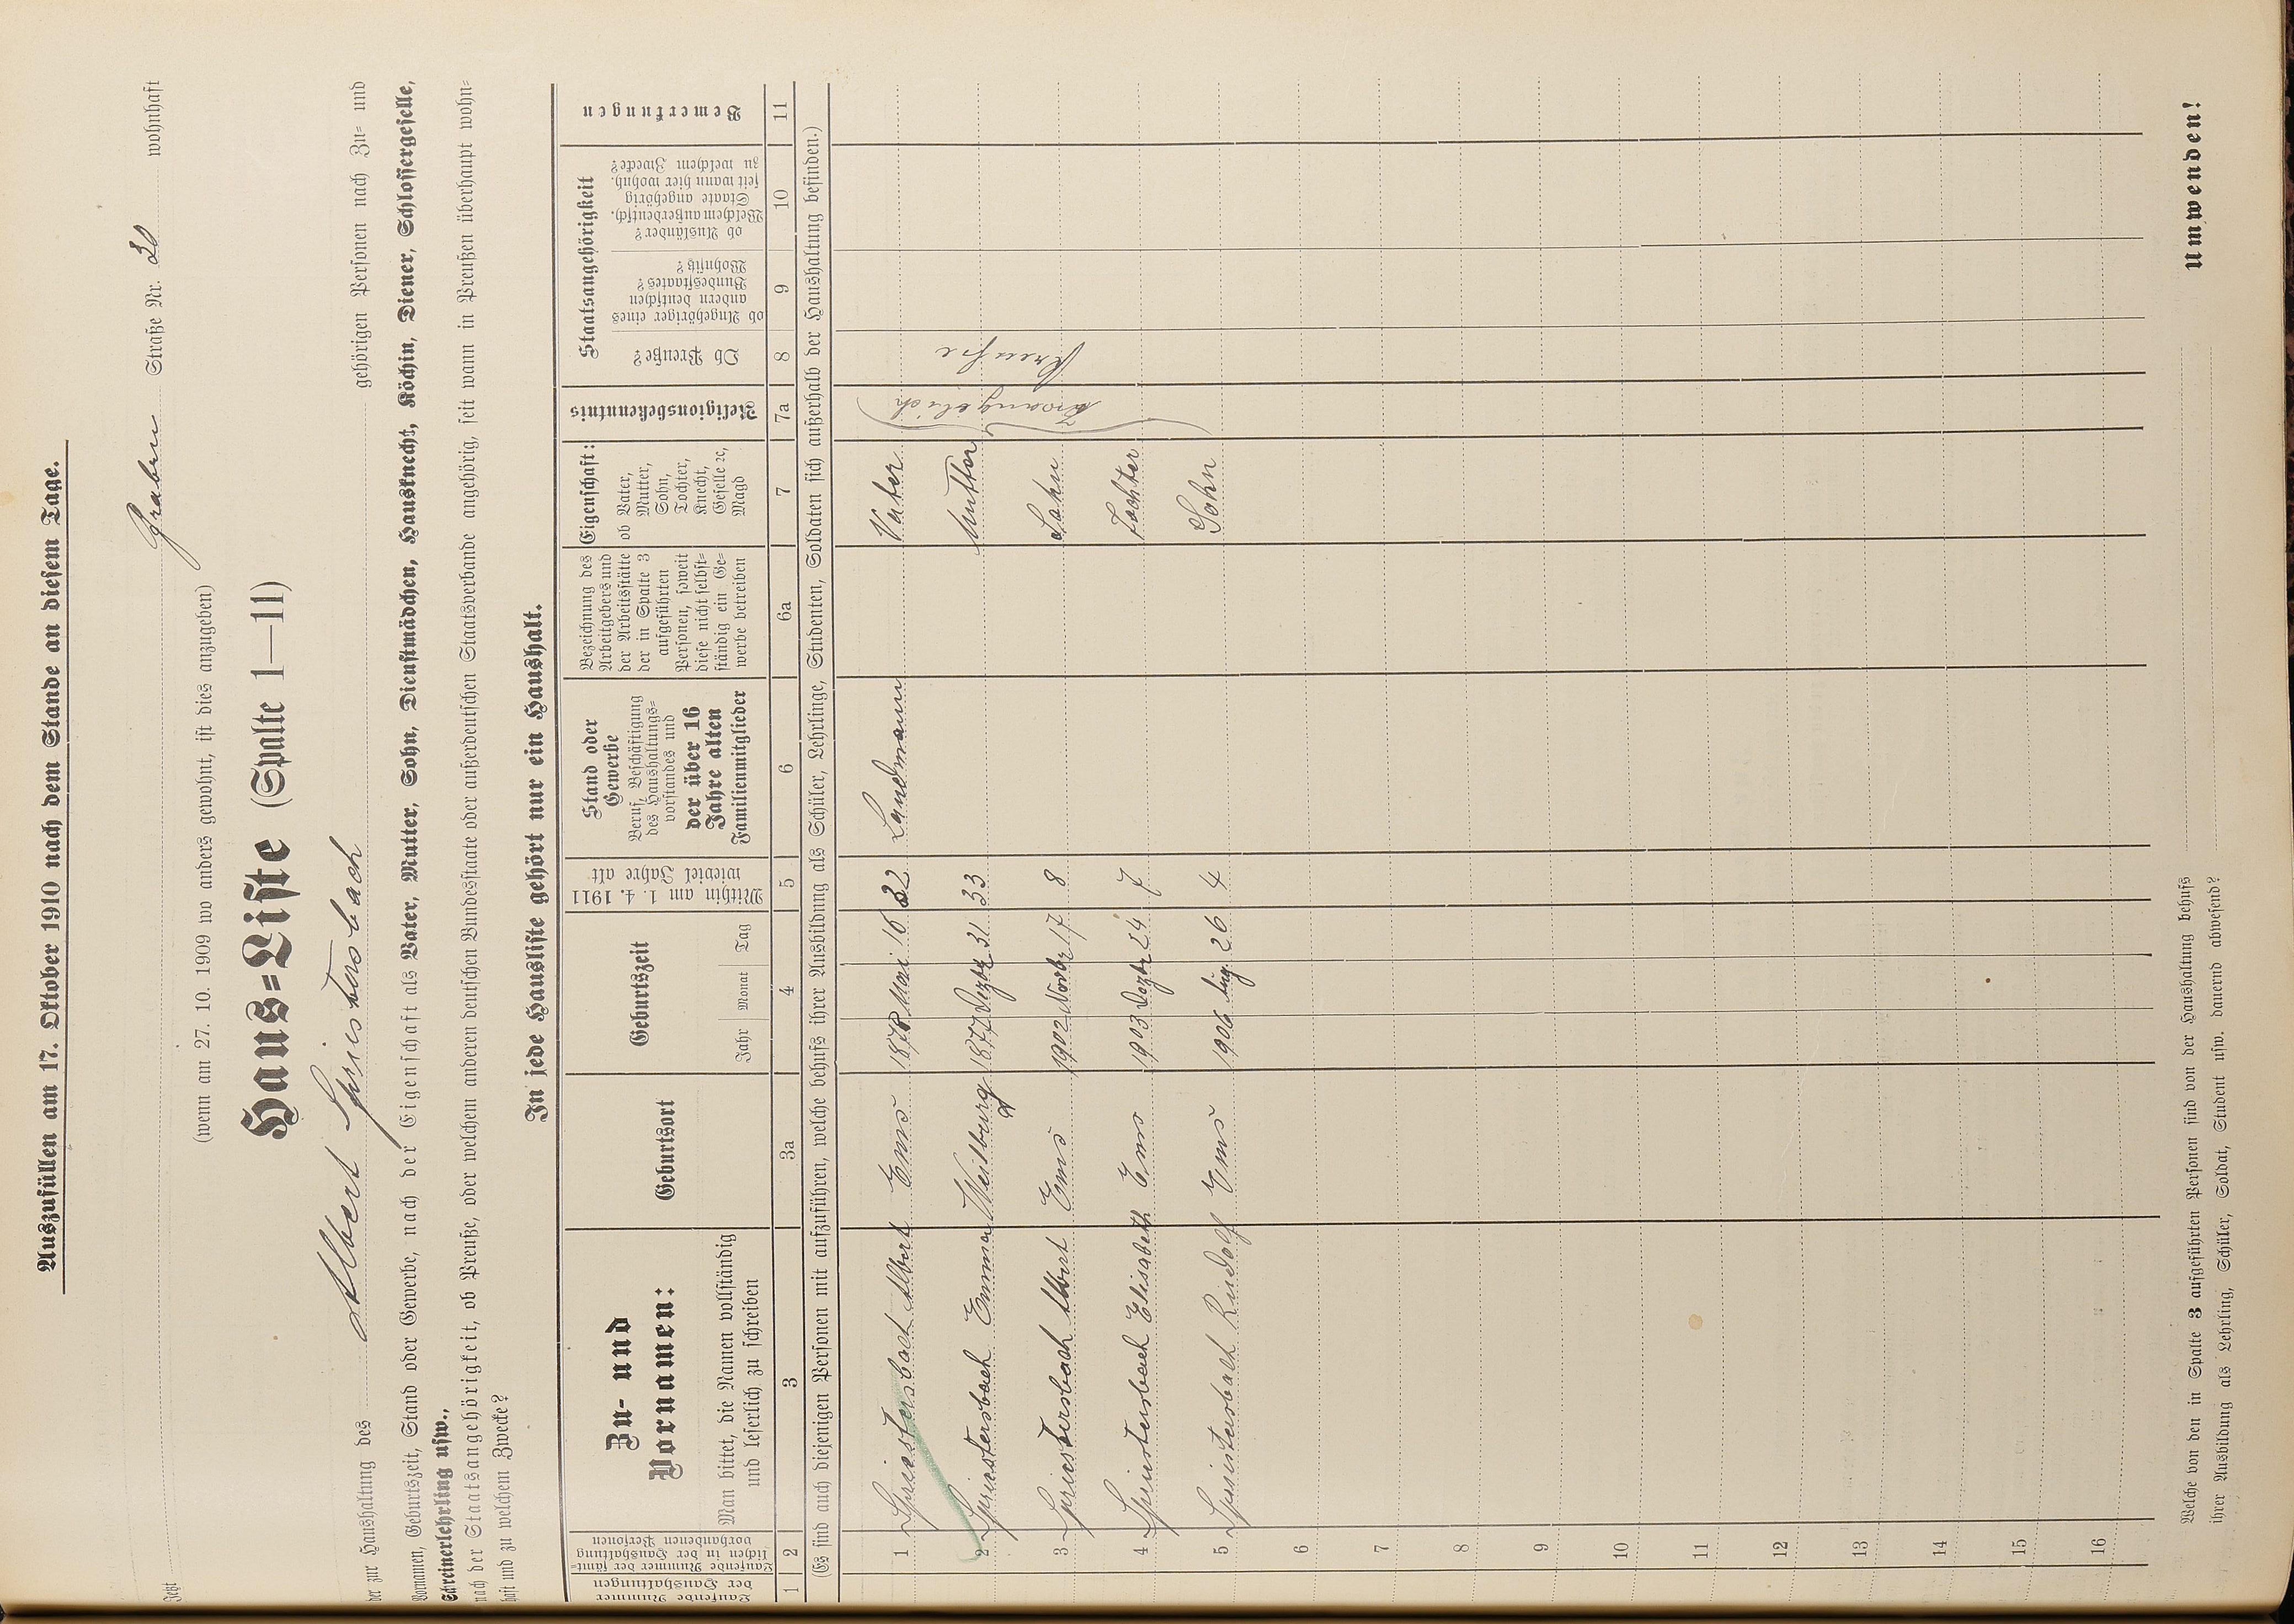 Auszufüllen am 17. Oktober 1910 nach dem Stande an diesem Tage.
Jetzt Graben Straße Nr. 30 wohnhaft
(wenn am 27. 10. 1909 wo anders gewohnt, ist dies anzugeben)
Haus=Liste (Spalte 1—11)
der zur Haushaltung des Albert Spriestersbach gehörigen Personen nach Zu= und
Vornamen, Geburtszeit, Stand oder Gewerbe, nach der Eigenschaft als Vater, Mutter, Sohn, Dienstmädchen, Hausknecht, Köchin, Diener, Schlossergeselle,
Schreinerlehrling usw.,
nach der Staatsangehörigkeit, ob Preuße, oder welchem anderen deutschen Bundesstaate oder außerdeutschen Staatsverbande angehörig, seit wann in Preußen überhaupt wohn=
haft und zu welchem Zwecke?
In jede Hausliste gehört nur ein Haushalt.
Laufende Nummer der Haushaltungen
Laufende Nummer der sämt=lichen in der Haushaltung vorhandenen Personen
Zu- und Vornamen:
Man bittet, die Namen vollständig und leserlich zu schreiben
Geburtsort
Geburtszeit
Jahr Monat Tag
Mithin am 1. 4. 1911 wieviel Jahre alt
Stand oder Gewerbe
Beruf, Beschäftigung des Haushaltungs=vorstandes und der über 16 Jahre alten Familienmitglieder
Bezeichnung des Arbeitgebers und der Arbeitsstätte der in Spalte 3 aufgeführten Personen, soweit diese nicht selbst=ständig ein Ge=werbe betreiben
Eigenschaft:
ob Vater, Mutter, Sohn, Tochter, Knecht, Geselle ꝛc, Magd
Religionsbekenntnis
Staatsangehörigkeit
Ob Preuße?
ob Angehöriger eines andern deutschen Bundesstaates? Wohnsitz?
ob Ausländer? Welchem außerdeutsch. Staate angehörig seit wann hier wohnh. zu welchem Zwecke?
Bemerkungen
1 2 3 3a 4 5 6 6a 7 7a 8 9 10 11
(Es sind auch diejenigen Personen mit aufzuführen, welche behufs ihrer Ausbildung als Schüler, Lehrlinge, Studenten, Soldaten sich außerhalb der Haushaltung befinden.)
1 Spriestersbach Albert Ems 1878 Mai 16 32 Landmann Vater
2 Spriestersbach Emma Weilburg 1877 Dezbr 31 33 Mutter
3 Spriestersbach Albert Ems 1902 Novbr 17 8 Sohn
4 Spriestersbach Elisabeth Ems 1903 Dezbr 24 7 Tochter
5 Spriestersbach Rudolf Ems 1906 Aug. 26 4 Sohn
Evangelisch
Preuße
6
7
8
9
10
11
12
13
14
15
16
Welche von den in Spalte 3 aufgeführten Personen sind von der Haushaltung behufs
ihrer Ausbildung als Lehrling, Schüler, Soldat, Student usw. dauernd abwesend?
umwenden!